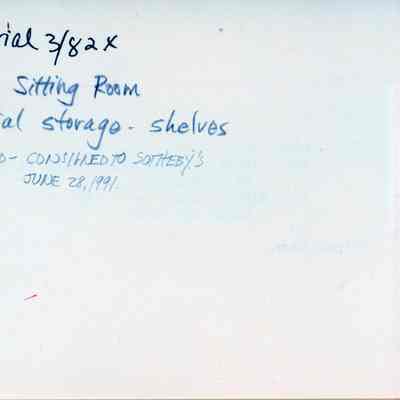 rial 3/82x
Sitting Room
ial storage - shelves
D - CONSIGNED TO SOTHEBY'S
JUNE 28, 1991.